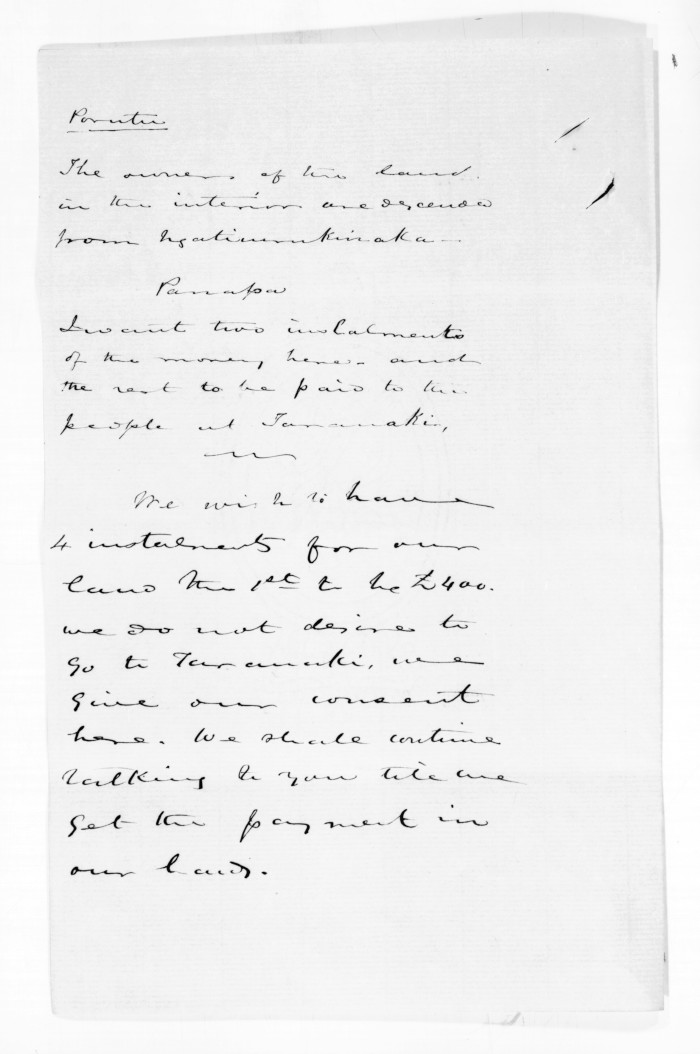 Porutu
The owners of this land
in the interior are descended
from Ngatiuruukinaka
Panapa
I want two instalments
of the money here - and
the rest to be paid to the
people at Taranaki,
We wish to have
4 instalments for our
land the 1st to be £400.
we do not desire to
go to Taranaki, we
give our consent
here. We shall continue
talking to you till we
get the payment in
our hands.